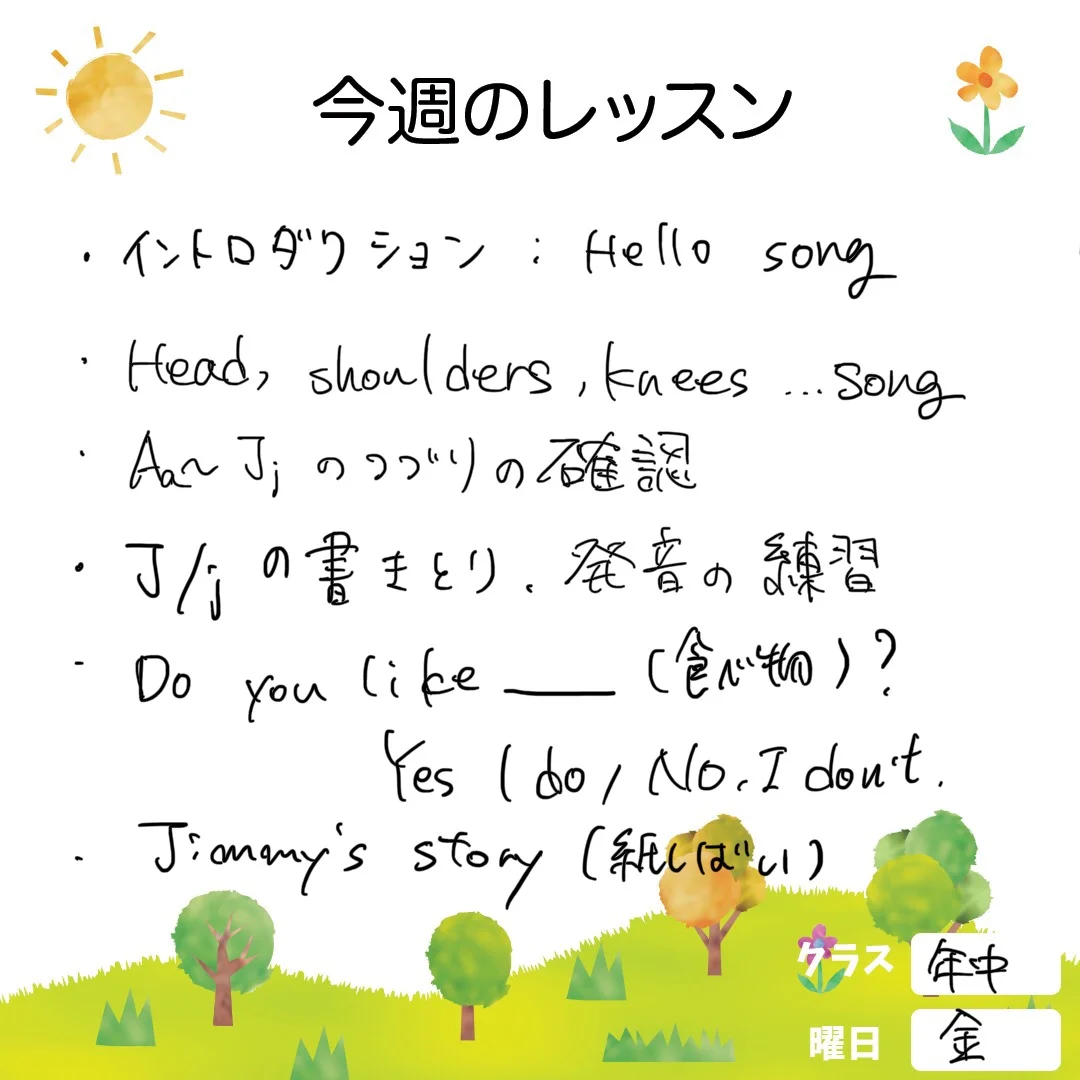 今週のレッスン
・イントロダクション：Hello song
・Head, shoulders, knees ...song
・Aa～Jjのつづりの確認
・J/jの書きとり、発音の練習
・Do you like ＿＿ (食べ物)?
Yes I do / No, I don't.
・Jimmy's story (紙しばい)
クラス 年中
曜日 金